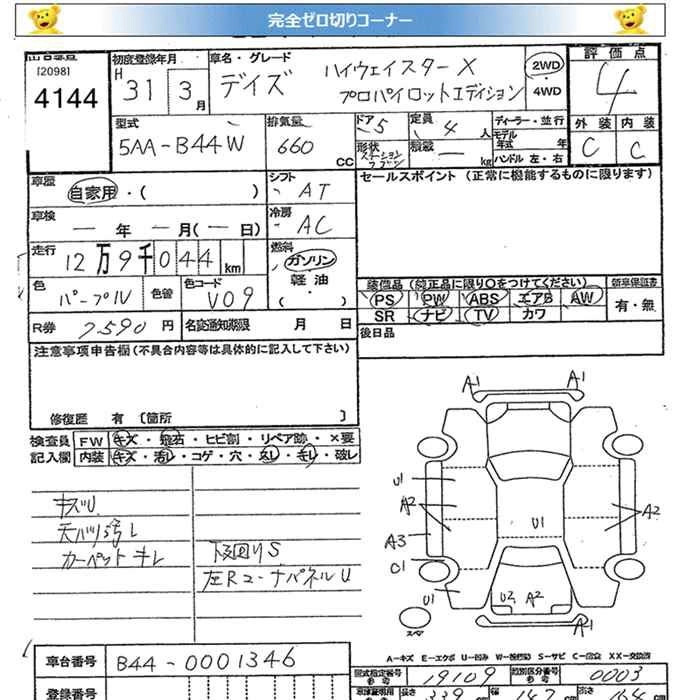 完全ゼロ切りコーナー
出品番号
[2098]
4144
初度登録年月
H 31 3 月
車名・グレード
デイズ ハイウェイスターX
プロパイロットエディション
2WD
・
4WD
評価点
4
外装 内装
C C
型式
5AA-B44W
排気量
660 CC
ドア 5
形状 ステーションワゴン
定員 4 人
積載 — kg
ディーラー・並行
モデル年式 年
ハンドル 左・右
車歴 自家用・( )
シフト AT
セールスポイント (正常に機能するものに限ります)
車検 — 年 — 月(— 日)
冷房 AC
走行 12万9千044 km
燃料 ガソリン
軽油
・
( )
色 パープル 色替 色コード V09
装備品 (純正品に限り○をつけてください) 新車保証書
PS PW ABS エアB AW 有・無
SR ナビ TV カワ
R券 7590 円 名変通知期限 月 日
後日品
注意事項申告欄 (不具合内容等は具体的に記入して下さい)
修復歴 有 [箇所 ]
検査員 FW キズ・飛石・ヒビ割・リペア跡・×要
記入欄 内装 キズ・汚レ・コゲ・穴・スレ・キレ・破レ
キズU
天バリ汚レ
カーペットキレ
下回りS
左RコーナパネルU
A1 A1
U1
A2
A2
U1
A3
C1
U1
U2 A2
スペア
A1
A-キズ E-エクボ U-凹み W-補修跡 S-サビ C-腐食 XX-交換済
車台番号 B44-0001346
型式指定番号 19109 類別区分番号 0003
登録番号